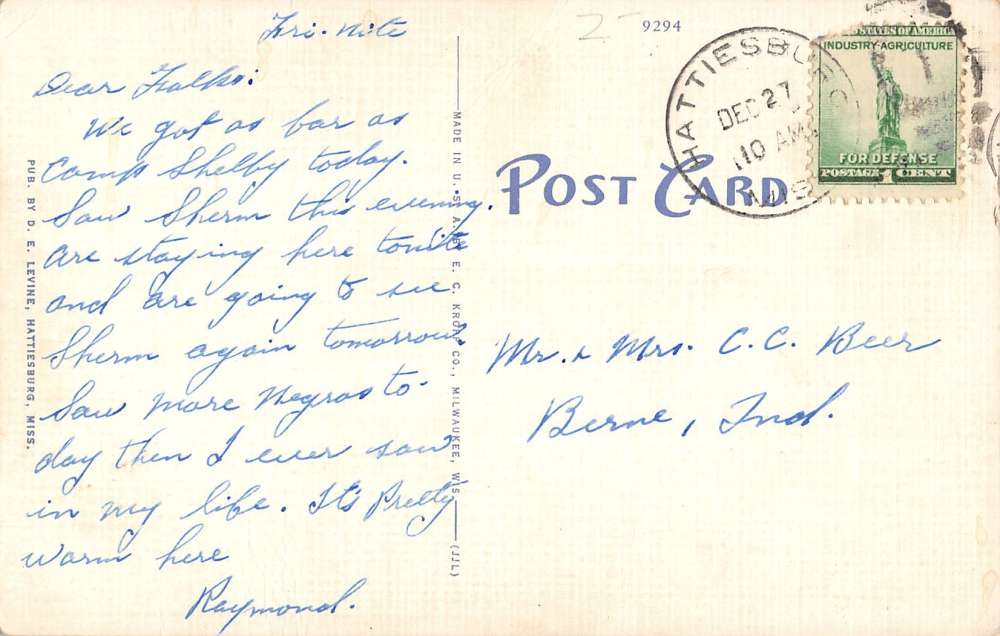 Fri. Nite
Dear Folks:
We got as far as
Camp Shelby today.
Saw Sherm this evening.
are staying here tonite
and are going to see
Sherm again tomorrow.
Saw more Negros to-
day then I ever saw
in my life. It's Pretty
warm here
Raymond.
PUB. BY D. E. LEVINE, HATTIESBURG, MISS.
MADE IN U. S. A. BY E. C. KROPP CO., MILWAUKEE, WIS.
(JJL)
9294
POST CARD
HATTIESBURG
DEC 27
10 AM
MISS
STATES OF AMERICA
INDUSTRY AGRICULTURE
FOR DEFENSE
POSTAGE 1 CENT
Mr. & Mrs. C. C. Beer
Berne, Ind.